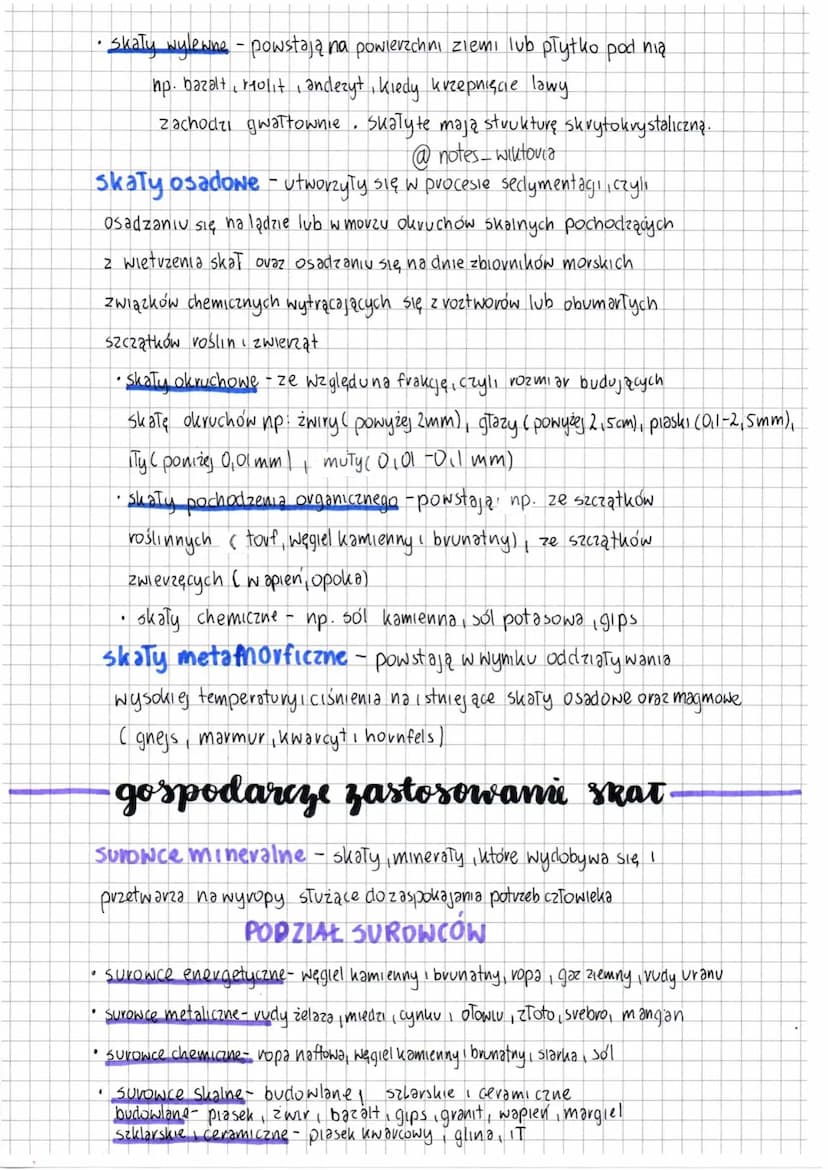 • skały wylewne - powstają na powierzchni ziemi lub płytko pod nią
np. bazalt, riolit, andezyt, kiedy krzepnięcie lawy
zachodzi gwałtownie. Skały te mają strukturę skrytokrystaliczną.
@notes_wiktoria
skały osadowe - utworzyły się w procesie sedymentacji, czyli
osadzaniu się na lądzie lub w morzu okruchów skalnych pochodzących
z wietrzenia skał oraz osadzaniu się na dnie zbiorników morskich
związków chemicznych wytrącających się z roztworów lub obumarłych
szczątków roślin i zwierząt
• skały okruchowe - ze względu na frakcję, czyli rozmiar budujących
skałę okruchów np: żwiry (powyżej 2mm), głazy (powyżej 2,5cm), piaski (0,1-2,5mm),
iły (poniżej 0,01mm), muły (0,01-0,1mm)
• skały pochodzenia organicznego - powstają: np. ze szczątków
roślinnych (torf, węgiel kamienny i brunatny), ze szczątków
zwierzęcych (wapień, opoka)
• skały chemiczne - np. sól kamienna, sól potasowa, gips
skały metamorficzne - powstają w wyniku oddziaływania
wysokiej temperatury i ciśnienia na istniejące skały osadowe oraz magmowe
(gnejs, marmur, kwarcyt i hornfels)
gospodarcze zastosowanie skał
surowce mineralne - skały, minerały, które wydobywa się i
przetwarza na wyropy służące do zaspokajania potrzeb człowieka
PODZIAŁ SUROWCÓW
• surowce energetyczne - węgiel kamienny i brunatny, ropa, gaz ziemny, rudy uranu
• surowce metaliczne - rudy żelaza, miedzi, cynku i ołowiu, złoto, srebro, mangan
• surowce chemiczne - ropa naftowa, węgiel kamienny i brunatny, siarka, sól
• surowce skalne - budowlane, szklarskie i ceramiczne
budowlane - piasek, żwir, bazalt, gips, granit, wapień, margiel
szklarskie i ceramiczne - piasek kwarcowy, glina, ił